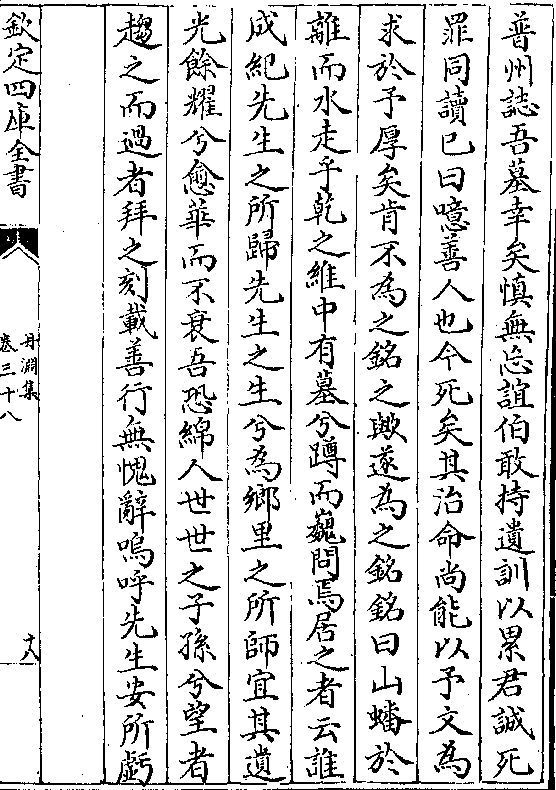 普州誌吾墓幸矣慎無忘誼伯敢持遺訓以累君誠死
罪同讀已曰噫善人也今死矣其治命尚能以予文為
求於予厚矣肯不為之銘之歟遂為之銘銘曰山蟠於
離而水走乎乾之維中有墓兮蹲而巍問焉居之者云誰
成紀先生之所歸先生之生兮為鄉里之所師宜其遺
光餘耀兮愈華而不衰吾恐綿人世世之子孫兮望者
趨之而過者拜之刻載善行無愧辭嗚呼先生安所虧
欽定四庫全書
丹淵集
卷三十八
十八